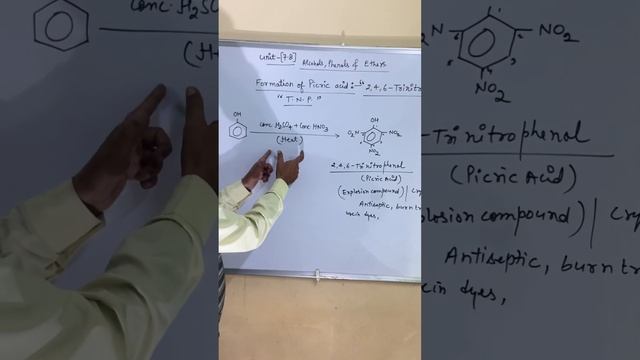 Unit-[7-8] Alcohols, Phenols & Ethers
Formation of Picric acid:- "2,4,6-Trinitro
"T.N.P."
OH
Conc. H2SO4 + Conc. HNO3
(Heat)
OH
O2N NO2
NO2
2,4,6-Trinitrophenol
(Picric Acid)
(Explosion compound) | Cry
Antiseptic, burn tr
use in dyes,
conc. H2SO
(H
N NO2
NO2
-Trinitrophenol
(Picric Acid)
plosion compound) | Cry
Antiseptic, burn tr
e in dyes,